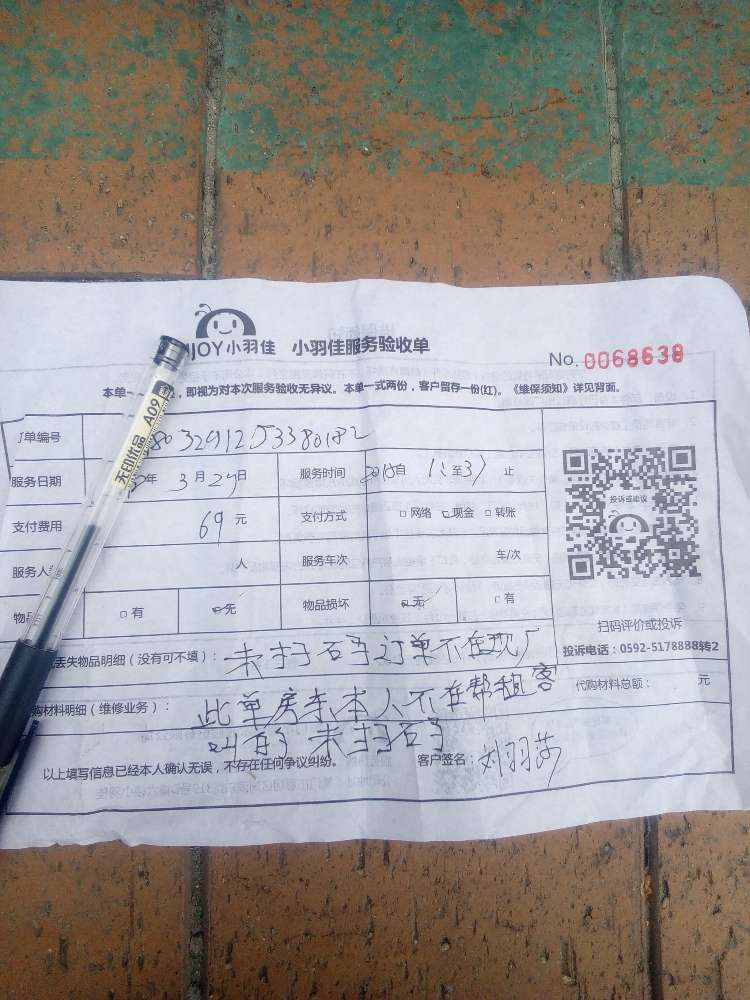 NJOY小羽佳 小羽佳服务验收单
No. 0068638
本单一 ，即视为对本次服务验收无异议。本单一式两份，客户留存一份(红)。《维保须知》详见背面。
单编号 803291253380182
服务日期 年 3 月 29 日 服务时间 自 至 止
支付费用 69 元 支付方式 □网络 □现金 □转账
服务人 人 服务车次 车/次
物品 □有 □无 物品损坏 □无 □有
投诉或建议
扫码评价或投诉
投诉电话：0592-5178888转2
丢失物品明细（没有可不填）： 未扫码 订单不在现
购材料明细（维修业务）： 此单房东本人不在帮租客 代购材料总额： 元
叫的 未扫码
以上填写信息已经本人确认无误，不存在任何争议纠纷。 客户签名： 刘羽莎
无印优品 A09